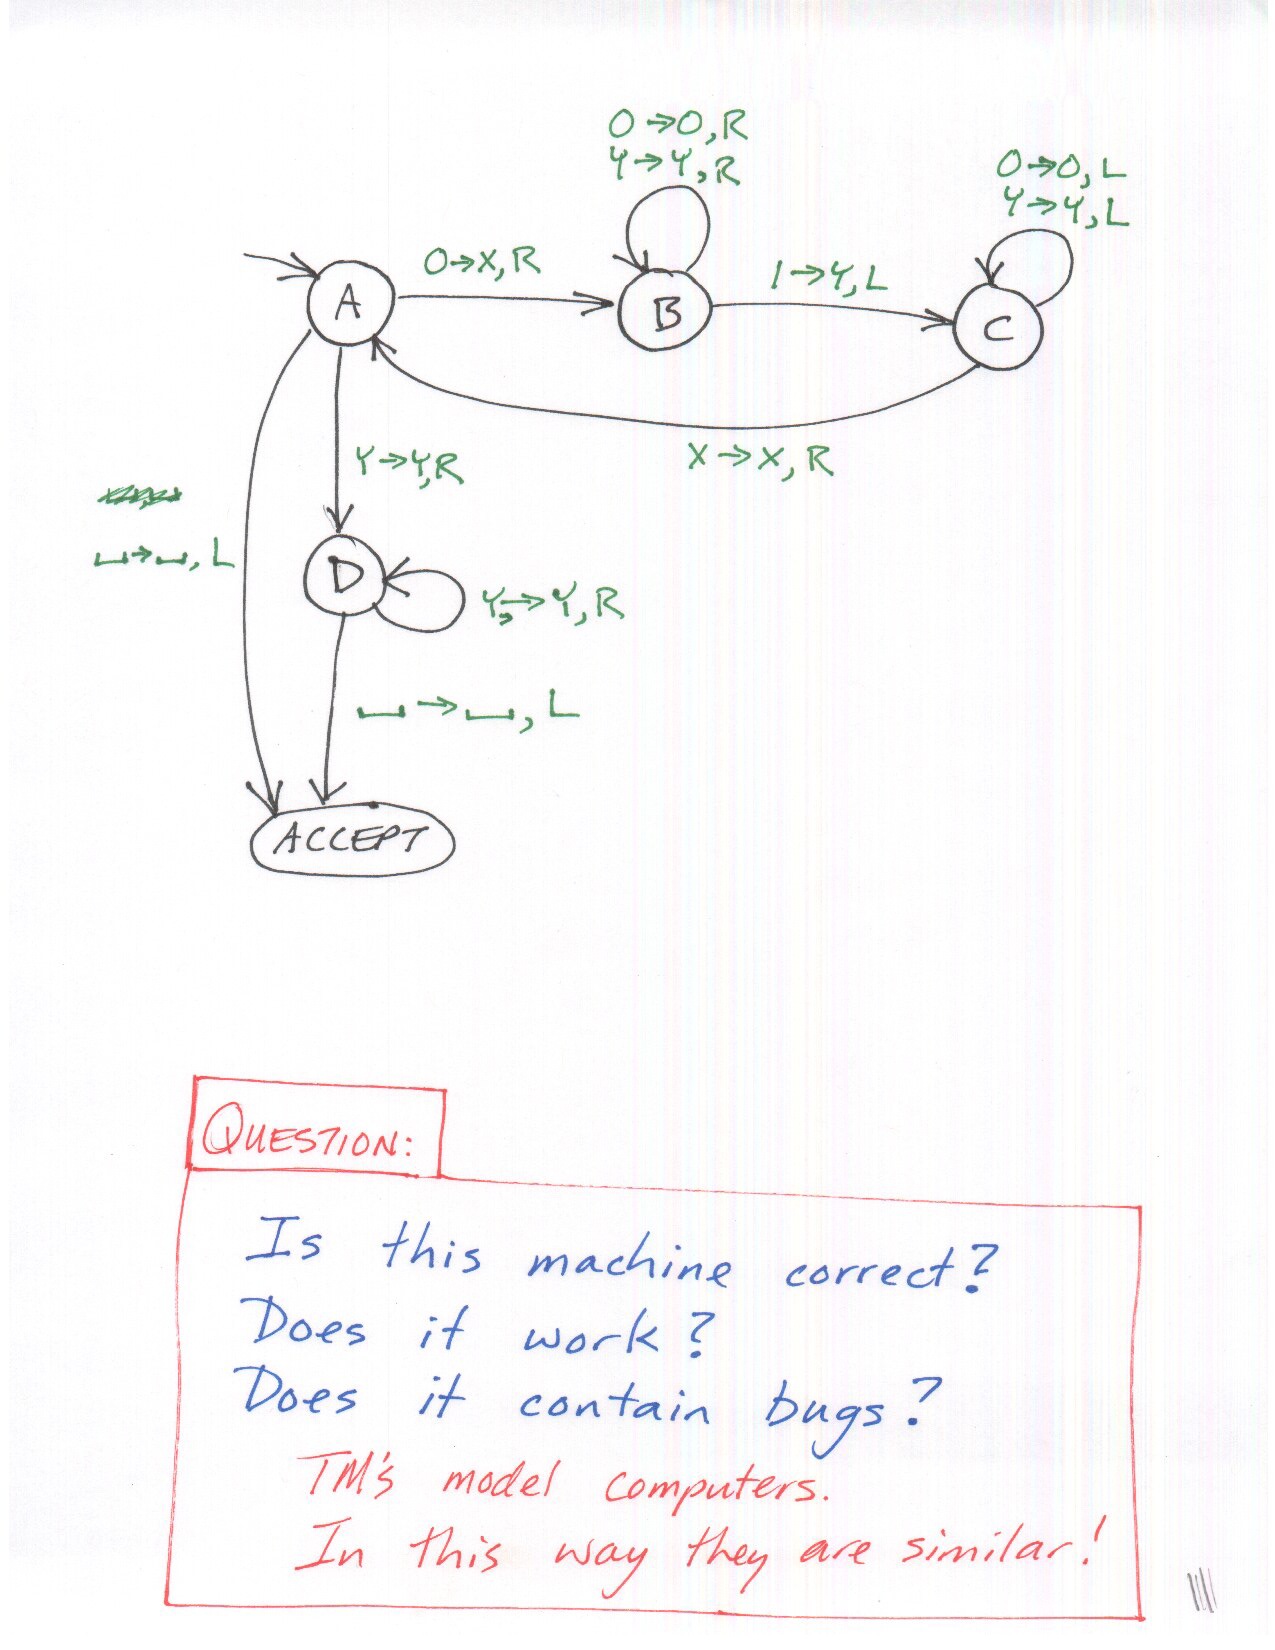 0→0,R
Y→Y,R
0→0,L
Y→Y,L
A
0→X,R
B
1→Y,L
C
X→X,R
Y→Y,R
␣→␣,L
D
Y→Y,R
␣→␣,L
ACCEPT
QUESTION:
Is this machine correct?
Does it work?
Does it contain bugs?
TM's model computers.
In this way they are similar!